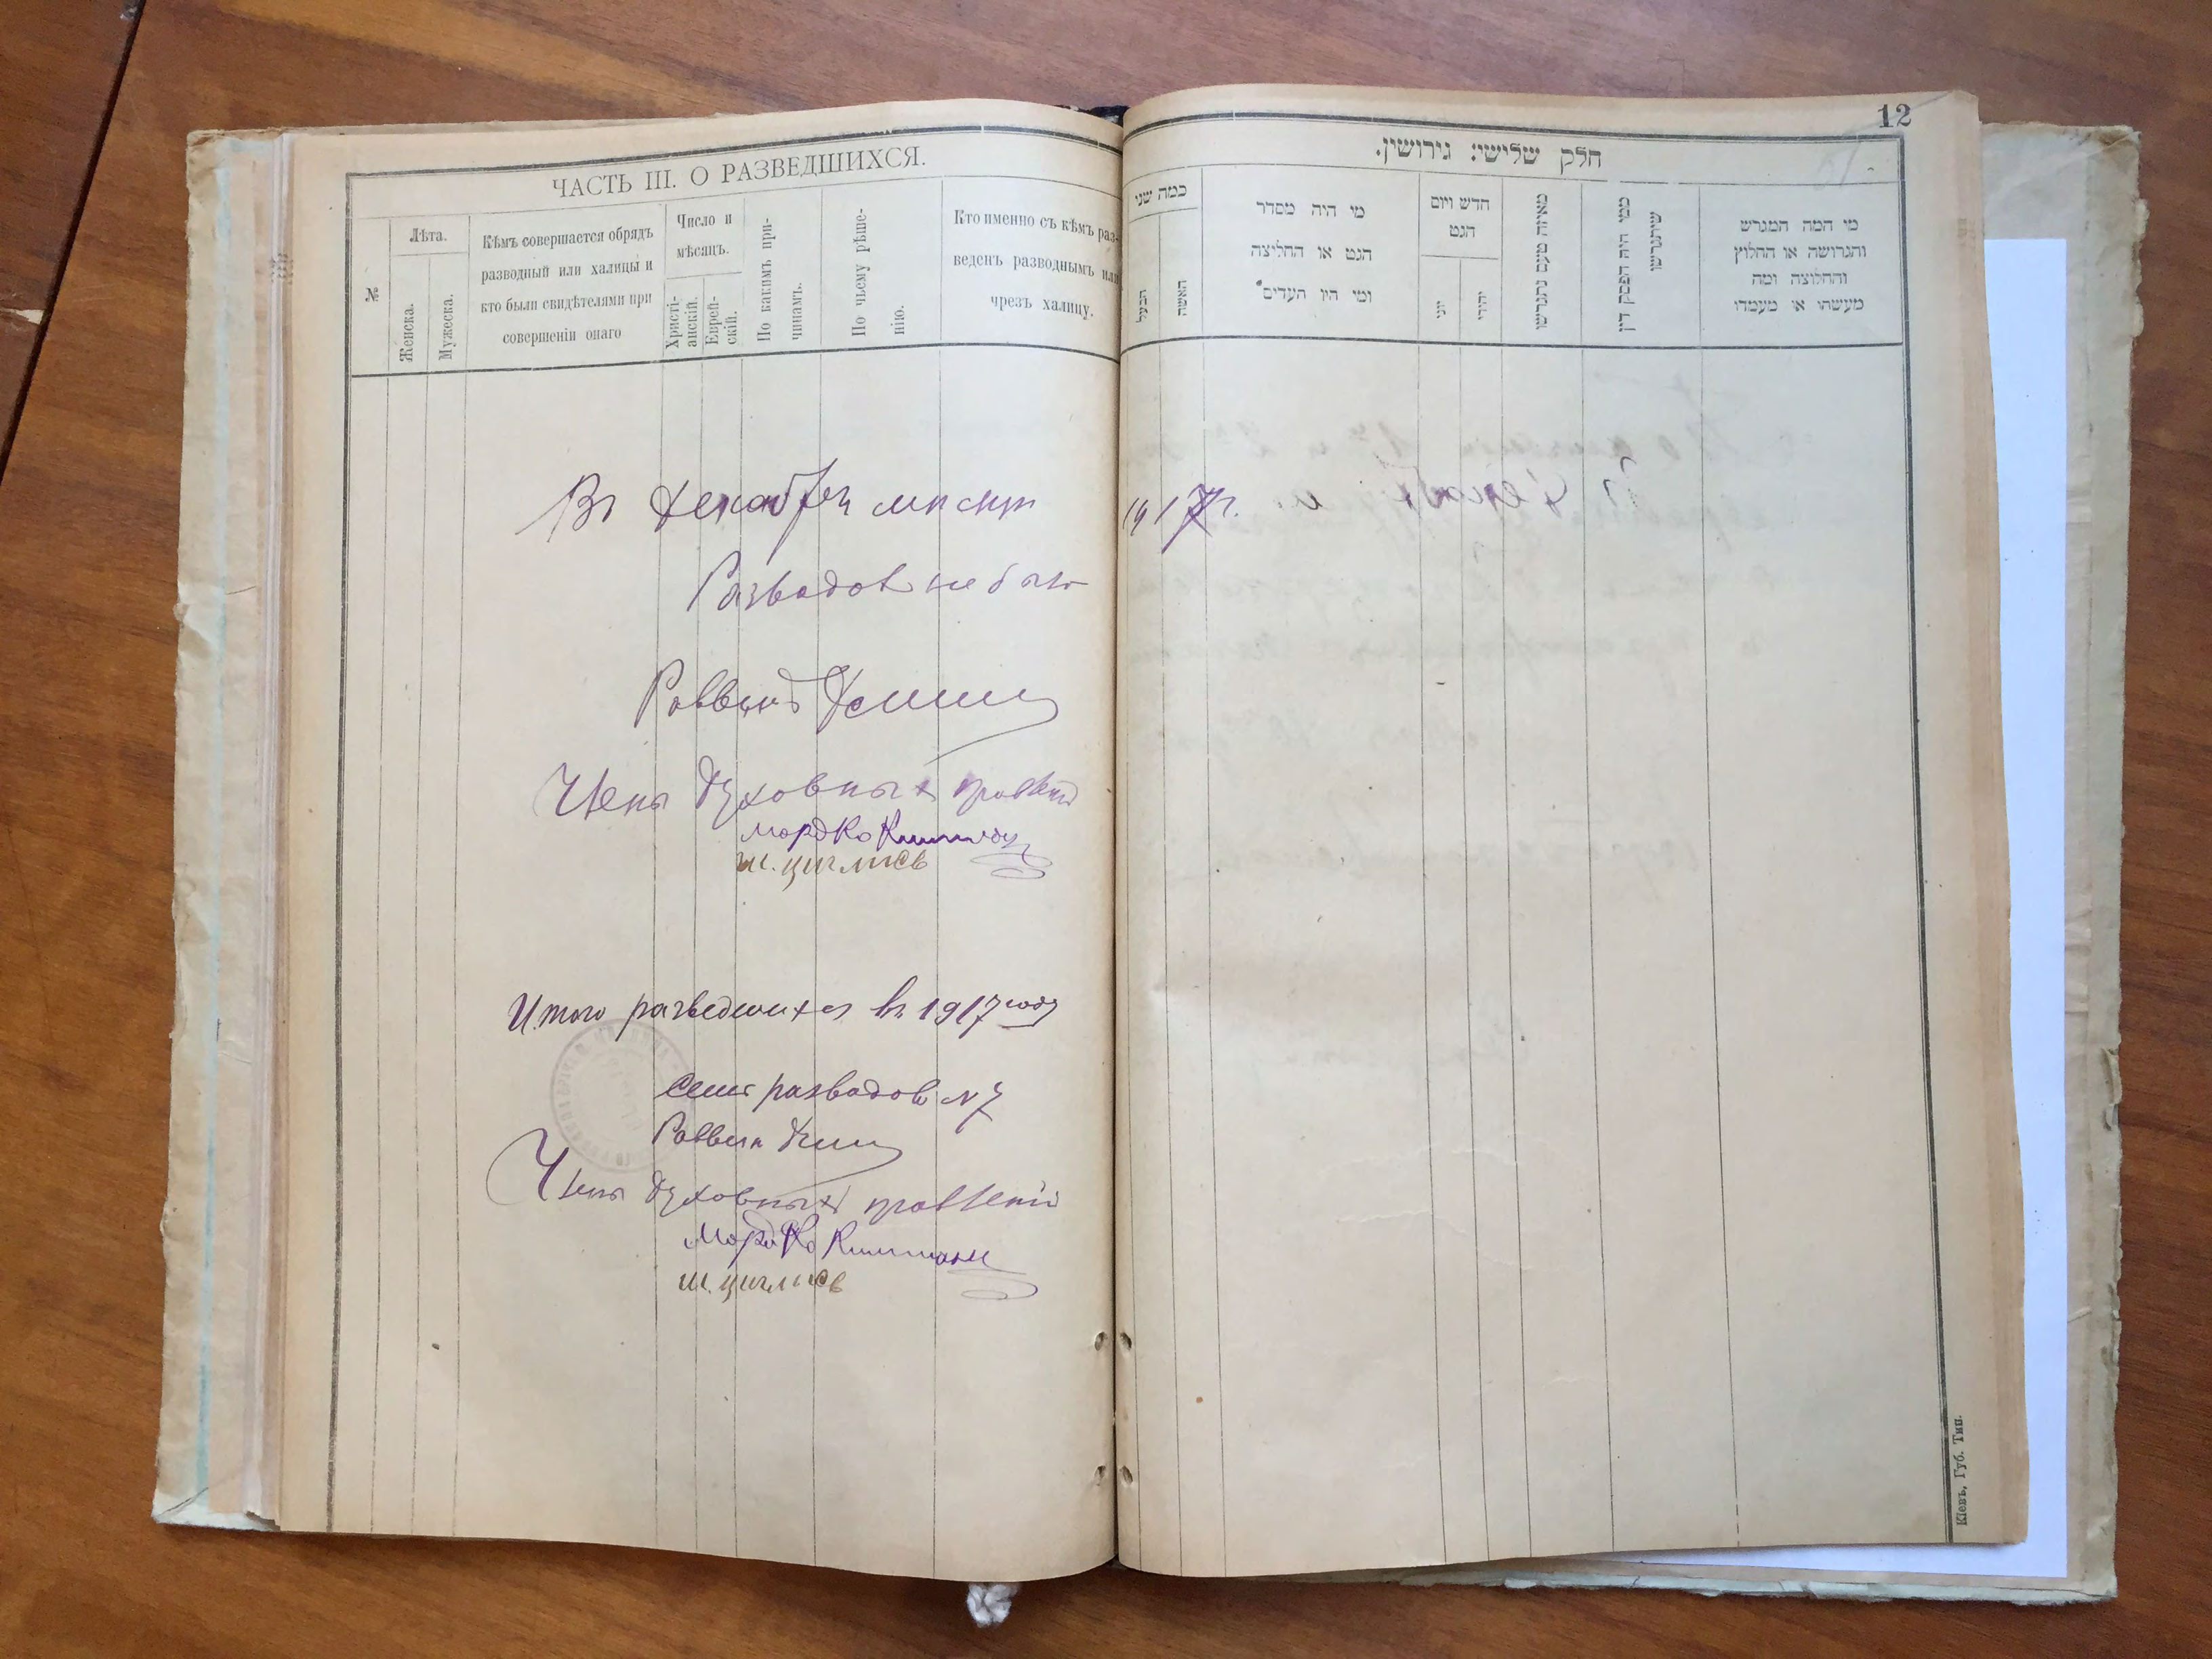 ЧАСТЬ III. О РАЗВЕДШИХСЯ.
№
Лѣта.
Женска.
Мужеска.
Кѣмъ совершается обрядъ
разводный или халицы и
кто были свидѣтелями при
совершеніи онаго
Число и
мѣсяцъ.
Христі-
анскій.
Еврей-
скій.
По какимъ при-
чинамъ.
По чьему рѣше-
нію.
Кто именно съ кѣмъ раз-
веденъ разводнымъ или
чрезъ халицу.
Въ Декабрѣ мѣсяцѣ 1917 г.
Разводов не было
Раввинъ
Члены духовныхъ правленій
Мордко
Ш. Циглисъ
Итого разведшихся въ 1917 году
Семь разводовъ № 7
Раввинъ
Члены духовныхъ правленій
Мордко
Ш. Циглисъ
12
חלק שלישי: גירושין.
כמה שני
הבעל
האשה
מי היה מסדר
הגט או החליצה
ומי היו העדים
חדש ויום
הגט
יוני
יהודי
מאיזה טעם נתגרשו
ממי היה הפסק דין
שיתגרשו
מי המה המגרש
והגרושה או החלוץ
והחלוצה ומה
מעשהו או מעמדו
Кіевъ, Губ. Тип.